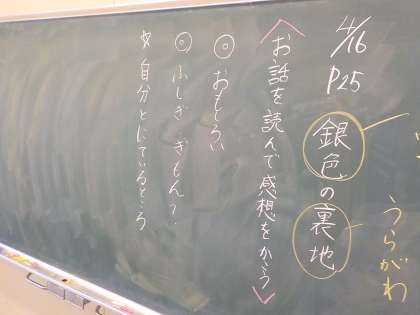 4/16
P25
銀色の裏地
うらがわ
お話を読んで感想をかこう
◎おもしろい
◎ふしぎ ぎもん?
☆自分とにているところ